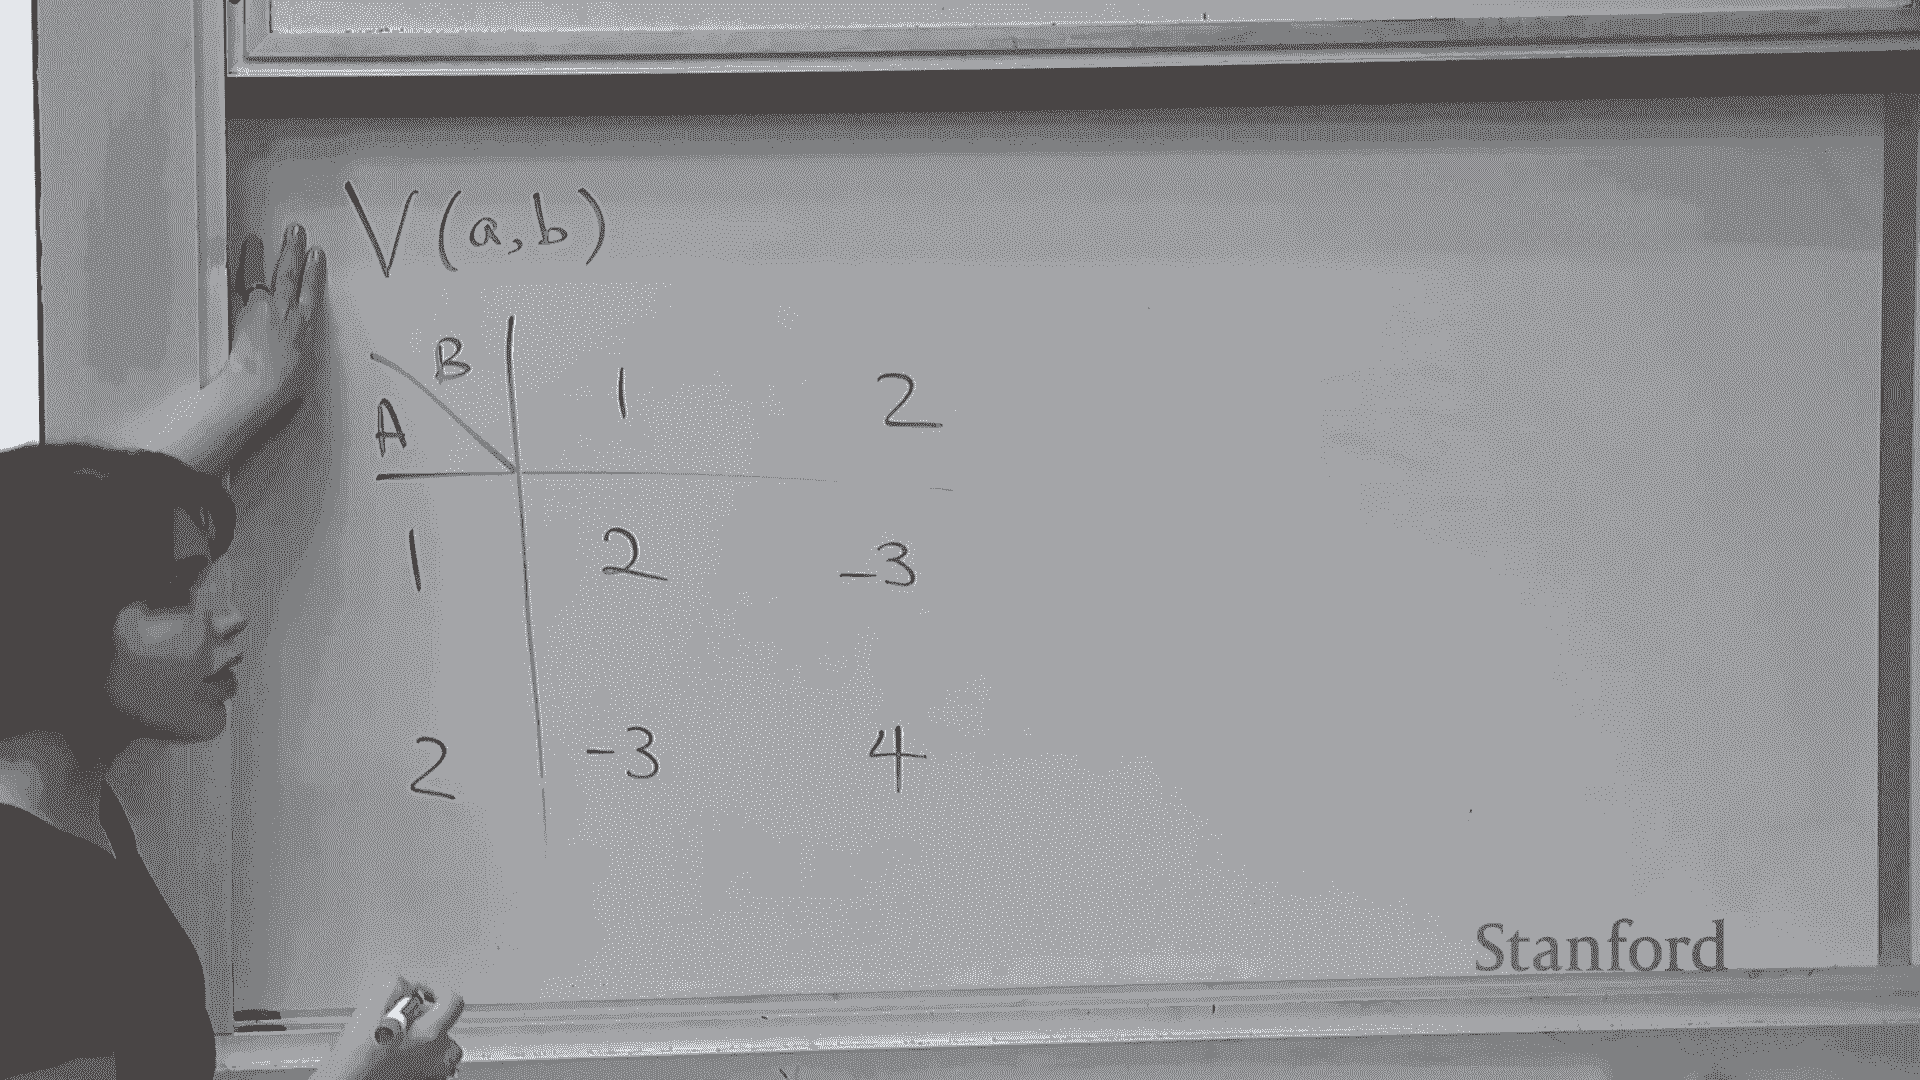 V(a,b)
B
A
1 2
1 2 -3
2 -3 4
Stanford